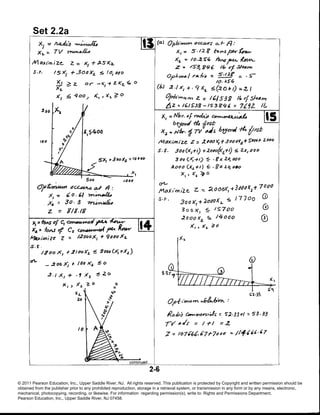 Set 2.2a
x₁ = radio minutes
x₂ = TV minutes
Maximize Z = x₁ + 25x₂
s.t. 15x₁ + 300x₂ ≤ 10,000
x₁/x₂ ≥ 2 or -x₁ + 2x₂ ≤ 0
x₁ ≤ 400, x₁, x₂ ≥ 0
200 x₂
100
x₁ ≤ 400
15x₁ + 300x₂ = 10000
500 1000
Optimum occurs at A:
x₁ = 60.61 minutes
x₂ = 30.3 minutes
Z = 818.18
14
x₁ = tons of C₁ consumed per hour
x₂ = tons of C₂ consumed per hour
Maximize Z = 12000x₁ + 9000x₂
s.t.
1800x₁ + 2100x₂ ≤ 2000(x₁+x₂)
or
-200x₁ + 100x₂ ≤ 0
2.1x₁ + .9x₂ ≤ 20
x₁, x₂ ≥ 0
x₂
20
10
A
continued
13
(a) Optimum occurs at A:
x₁ = 5.128 tons per hour
x₂ = 10.256 tons per hour
Z = 153,846 lb of Steam
Optimal ratio = 5.128/10.256 = .5
(b) 2.1x₁ + .9x₂ ≤ (20+1) = 21
Optimum Z = 161538 lb of Steam
Δ Z = 161538 - 153846 = 7692 lb
15
x₁ = Nbr. of radio commercials beyond the first
x₂ = Nbr. of TV ads beyond the first
Maximize Z = 2000x₁ + 3000x₂ + 5000 + 2000
s.t. 300(x₁+1) + 2000(x₂+1) ≤ 20,000
300(x₁+1) ≤ .8 × 20,000
2000(x₂+1) ≤ .8 × 20,000
x₁, x₂ ≥ 0
or
Maximize Z = 2000x₁ + 3000x₂ + 7000
s.t. 300x₁ + 2000x₂ ≤ 17700 ①
300x₁ ≤ 15700 ②
2000x₂ ≤ 14000 ③
x₁, x₂ ≥ 0
x₂
x₁
52.33 59
Optimum solution:
Radio commercials = 52.33+1 = 53.33
TV ads = 1+1 = 2
Z = 107666.67+7000 = 114666.67
2-6
© 2011 Pearson Education, Inc., Upper Saddle River, NJ. All rights reserved. This publication is protected by Copyright and written permission should be
obtained from the publisher prior to any prohibited reproduction, storage in a retrieval system, or transmission in any form or by any means, electronic,
mechanical, photocopying, recording, or likewise. For information regarding permission(s), write to: Rights and Permissions Department,
Pearson Education, Inc., Upper Saddle River, NJ 07458.